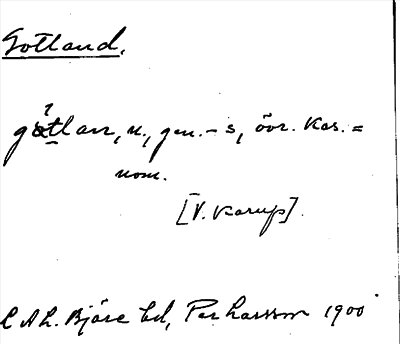 Gotland.
gøtlan, n., gen. -s, övr. kas. =
nom.
[V. Karup].
Bjäre hd, Per Larsson 1900